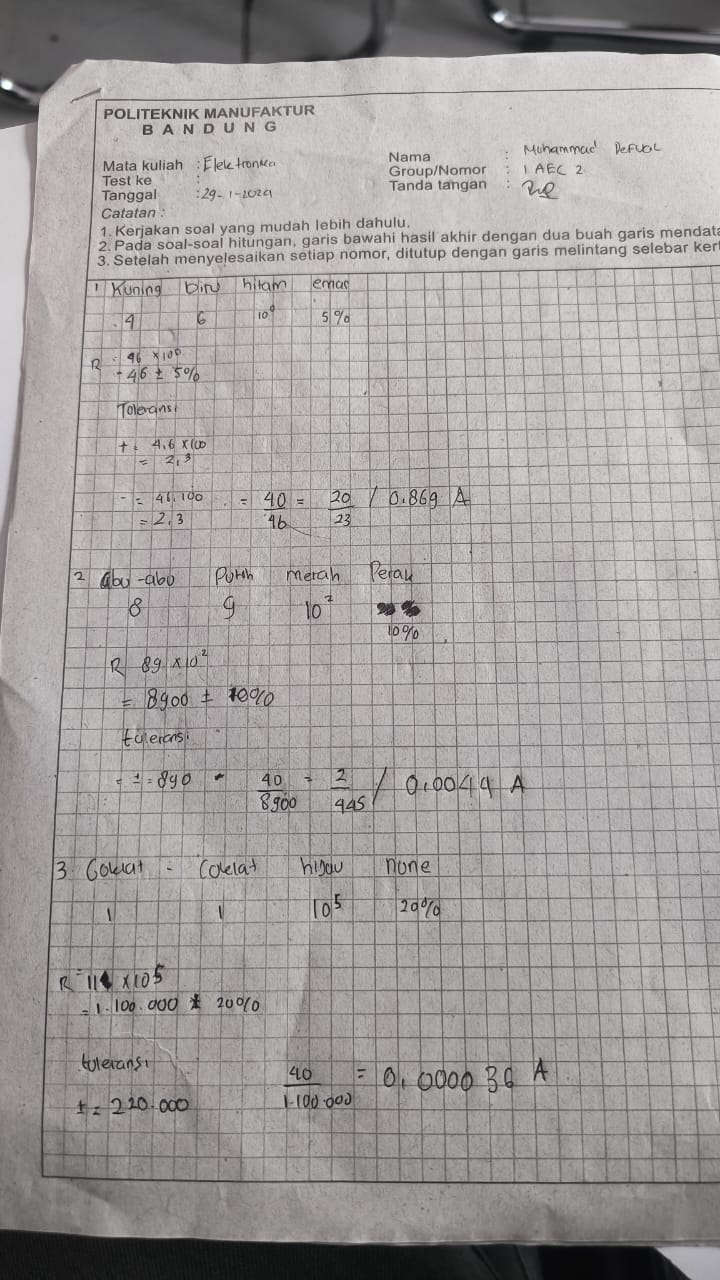 POLITEKNIK MANUFAKTUR
BANDUNG
Mata kuliah : Elektronika
Test ke :
Tanggal : 29-1-2024
Nama : Muhammad Defval
Group/Nomor : 1 AEC 2
Tanda tangan :
Catatan :
1. Kerjakan soal yang mudah lebih dahulu.
2. Pada soal-soal hitungan, garis bawahi hasil akhir dengan dua buah garis mendata
3. Setelah menyelesaikan setiap nomor, ditutup dengan garis melintang selebar ker
1 Kuning biru hitam emas
4 6 10⁰ 5%
R = 46 x 10⁰
= 46 ± 5%
Toleransi
+ = 4,6 x 100
= 2,3
- = 46.100 = 40/46 = 20/23 / 0.869 A
= 2,3
2 abu-abu Putih merah Perak
8 9 10² 10%
R 89 x 10²
= 8900 ± 10%
toleransi
= ± = 890 - 40/8900 = 2/445 / 0.0044 A
3 Coklat - Coklat hijau none
1 1 10⁵ 20%
R = 11 x 10⁵
= 1.100.000 ± 20%
toleransi 40/1.100.000 = 0,000036 A
± = 220.000